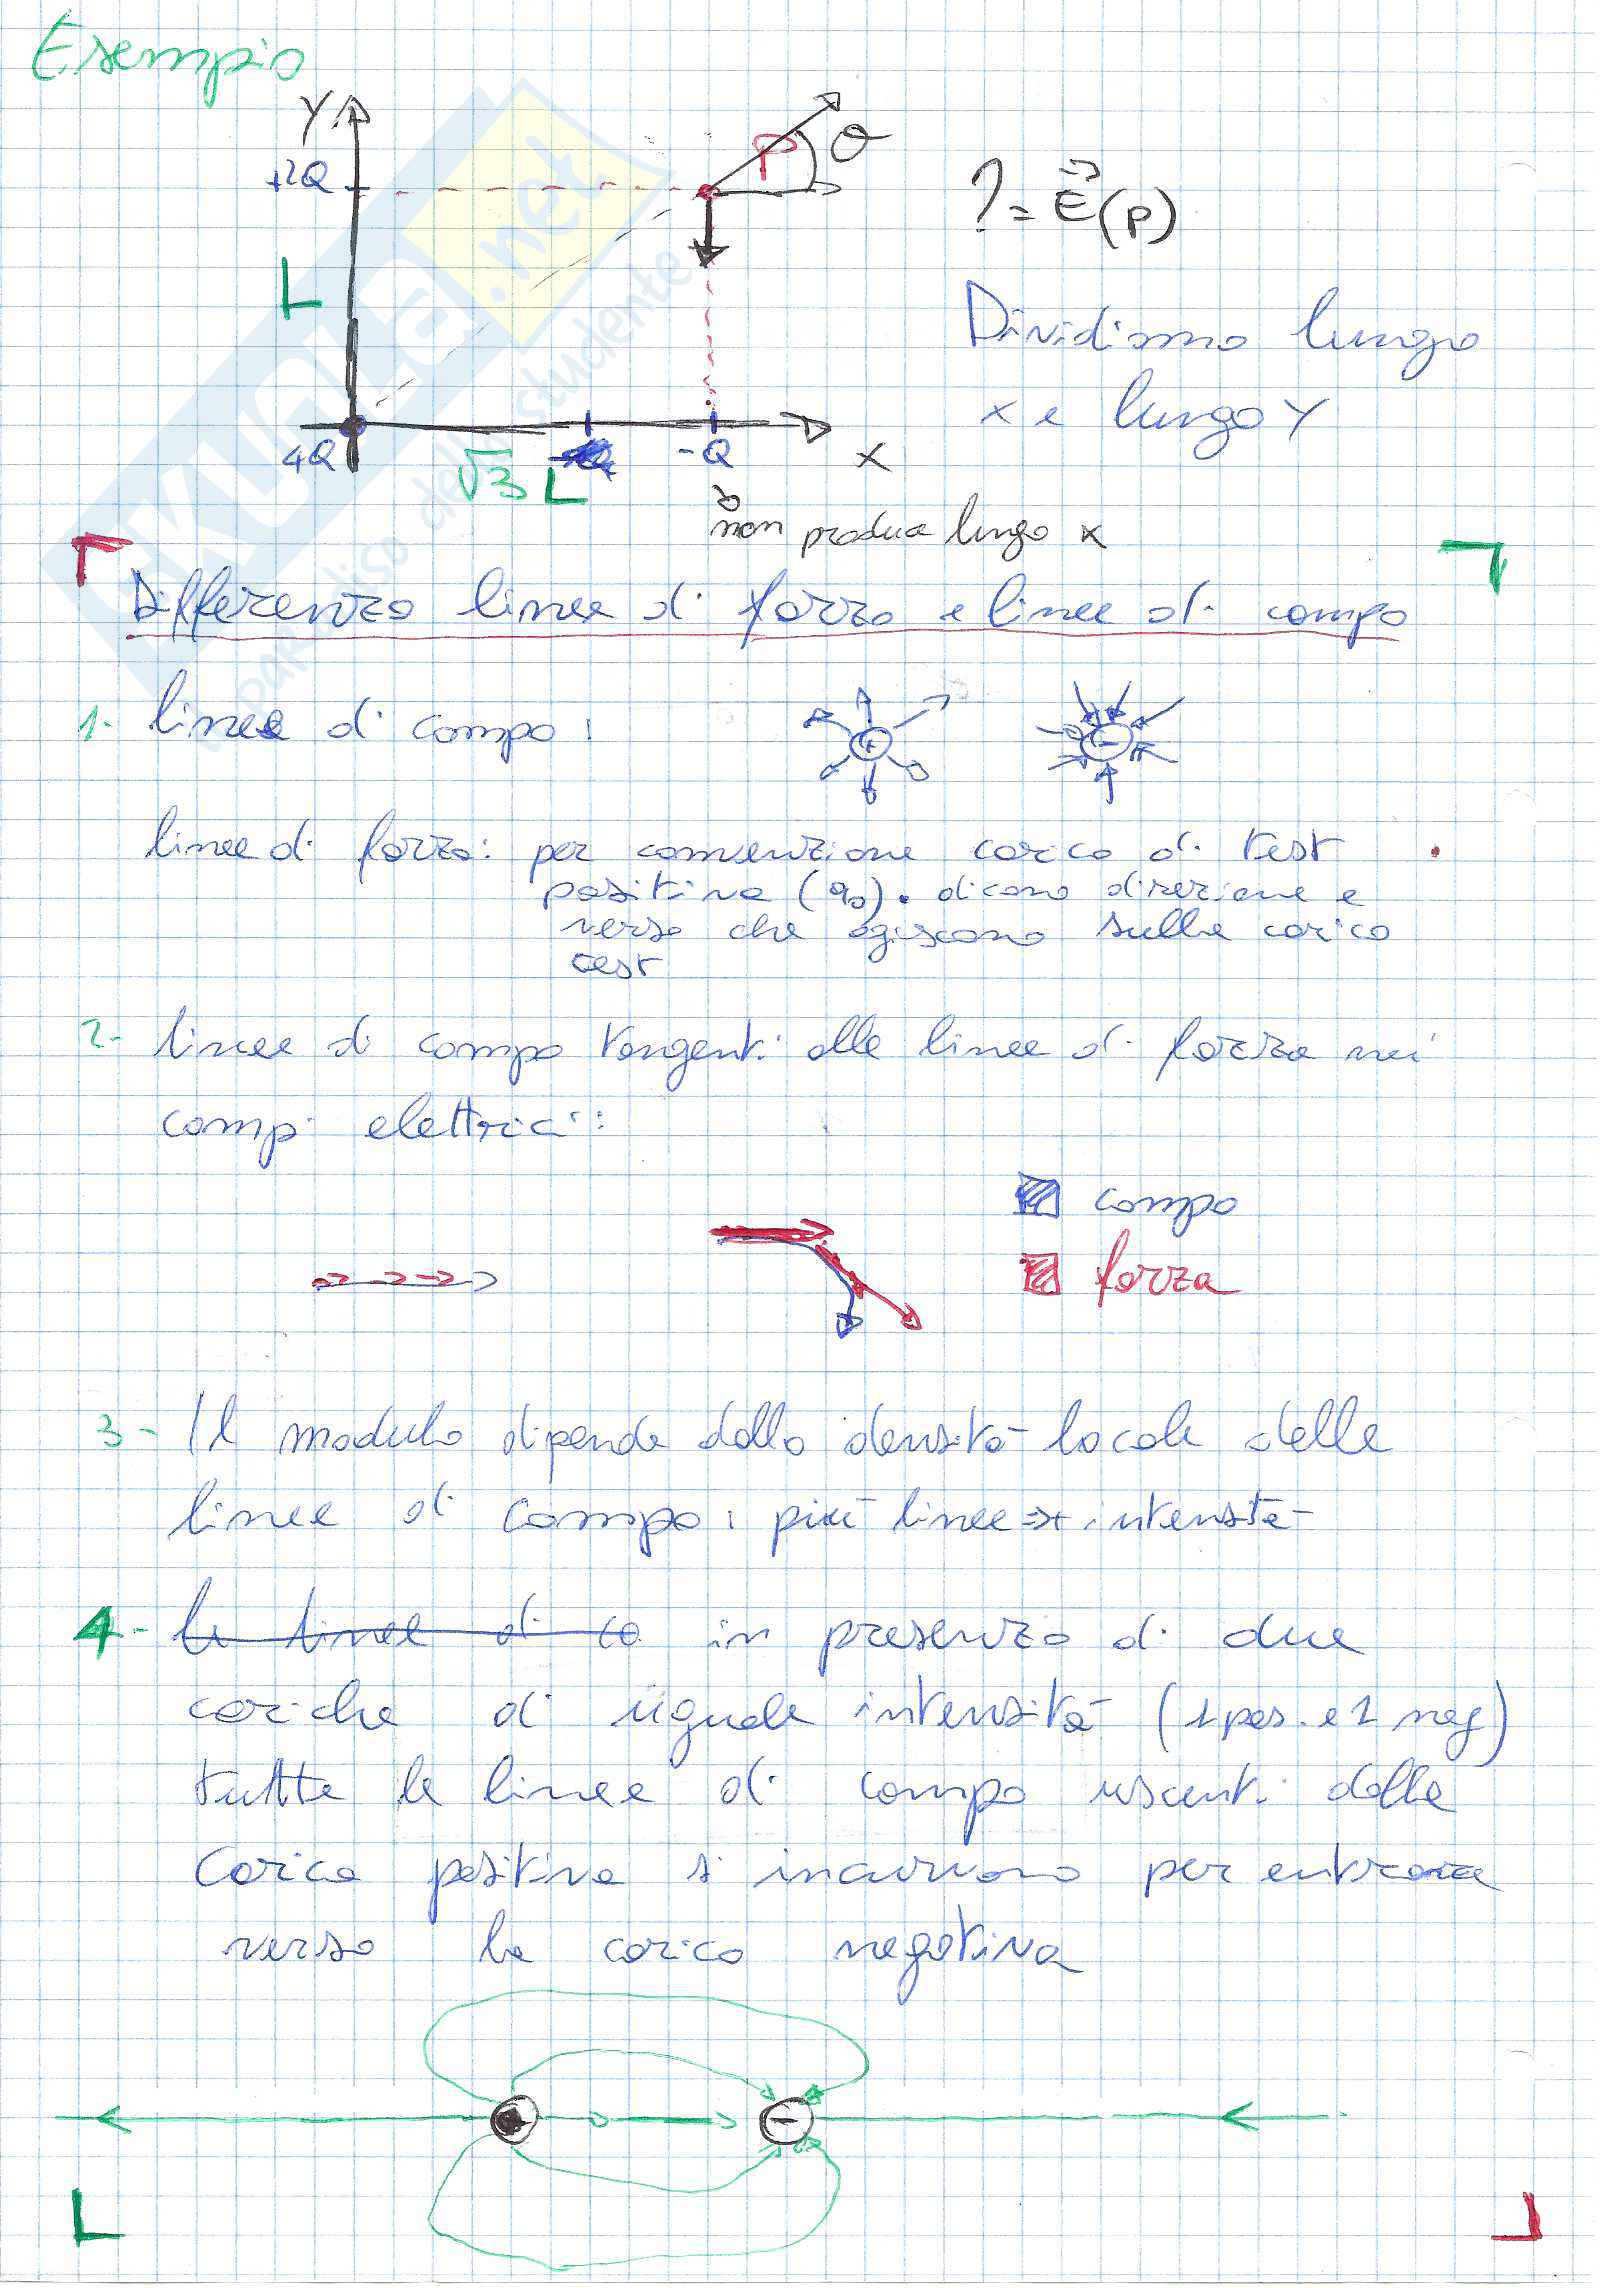 Esempio
Y
+2Q
P
θ
? = E(P)
L
Dividiamo lungo
x e lungo Y
4Q
√3 L
-Q
X
non produce lungo x
Differenza linee di forza e linee di campo
1- linee di campo:
+
-
linee di forza: per convenzione carica di test
positiva (q0). dicono direzione e
verso che agiscono sulla carica
test
2- linee di campo tangenti alle linee di forza nei
campi elettrici:
campo
forza
3- Il modulo dipende dalla densità locale delle
linee di campo: più linee => + intensità
4- le linee di ca in presenza di due
cariche di uguale intensità (1 pos. e 1 neg)
tutte le linee di campo uscenti dalla
carica positiva si incurvano per entrare
verso la carica negativa
-
SKUOLA.net
il paradiso dello studente